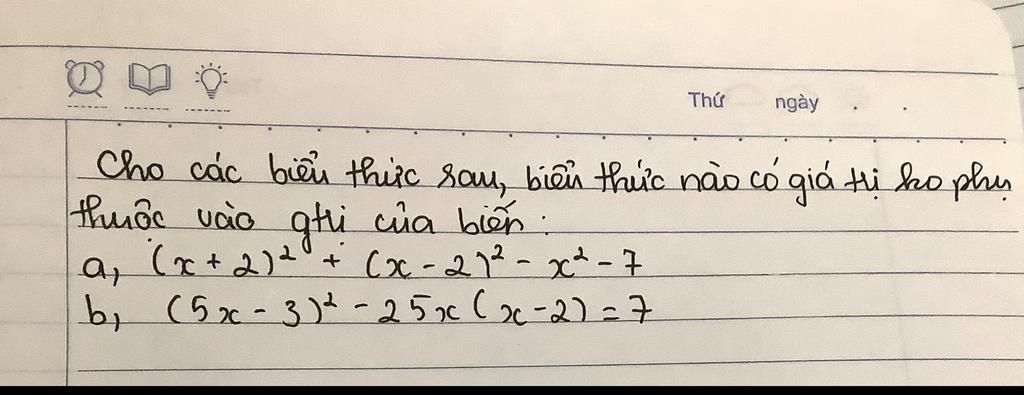 Thứ ngày . .
Cho các biểu thức sau, biểu thức nào có giá trị ko phụ
thuộc vào gtri của biến :
a, (x + 2)² + (x - 2)² - x² - 7
b, (5x - 3)² - 25x (x - 2) = 7